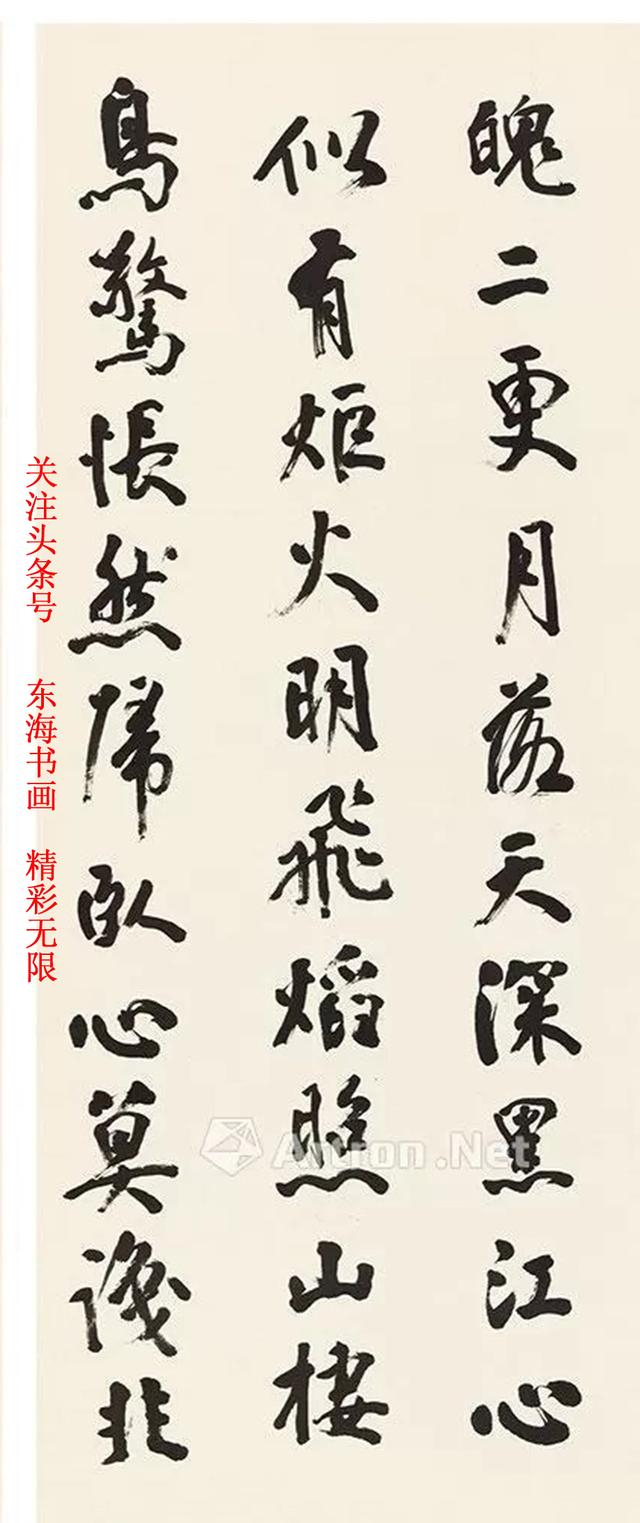 魄二更月落天深黑江心
似有炬火明飛焰照山棲
鳥驚悵然歸臥心莫識非
关注头条号 东海书画 精彩无限
Artron.Net